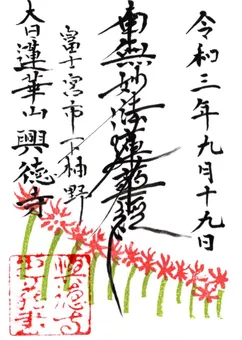 令和三年九月十九日
南無妙法蓮華経
富士宮市下柚野
大日蓮華山興徳寺